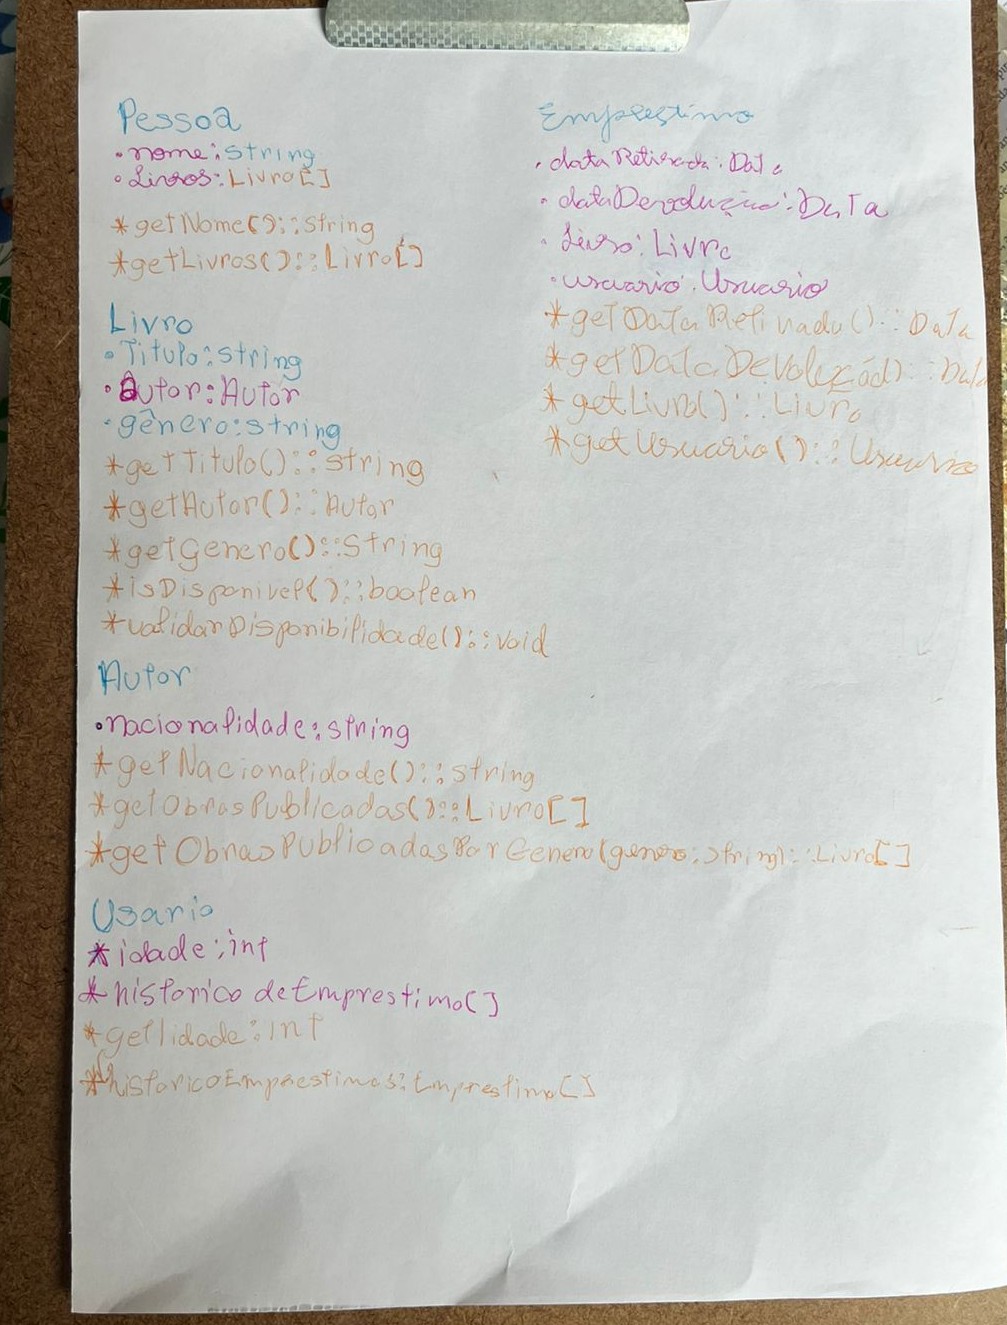 Pessoa
•nome:string
•Livros:Livro[]
*getNome()::string
*getLivros()::Livro[]
Livro
•Titulo:string
•Autor:Autor
•gênero:string
*getTitulo()::string
*getAutor()::Autor
*getGenero()::string
*isDisponivel()::boolean
*validarDisponibilidade()::void
Autor
•nacionalidade:string
*getNacionalidade()::string
*getObrasPublicadas()::Livro[]
*getObrasPublicadasPorGenero(genero:string)::Livro[]
Usario
*idade:int
*historico deEmprestimo[]
*getIidade:int
*historicoEmprestimos:Emprestimo[]
Emprestimo
•dataRetirada:Data
•dataDevolução:DaTa
•Livro:Livro
•usuario:Usuario
*getDataRetirada()::DaTa
*getDataDevolução)::Data
*getLivro()::Livro
*getUsuario()::Usuario